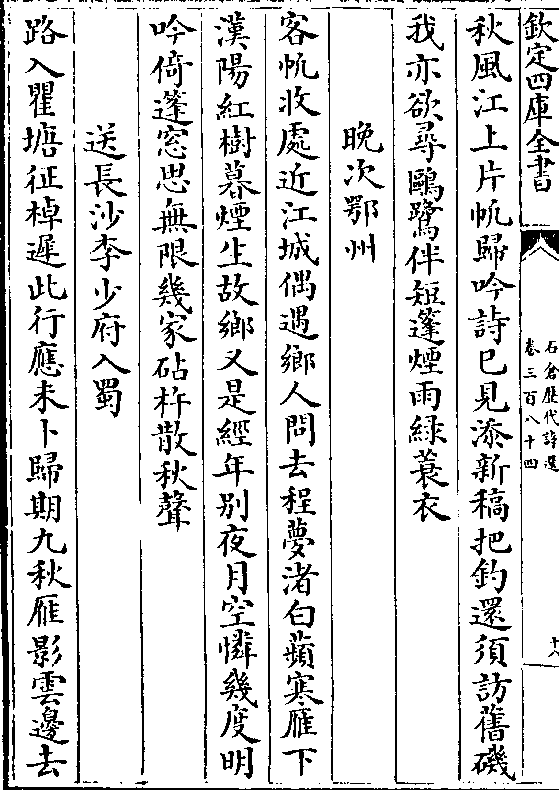 欽定四庫全書
石倉歷代詩選
卷三百八十四
十八
秋風江上片帆歸吟詩已見添新稿把釣還須訪舊磯
我亦欲尋鷗鷺伴短蓬煙雨緑蓑衣
晩次鄂州
客帆收處近江城偶遇鄉人問去程夢渚白蘋寒雁下
漢陽紅樹暮煙生故鄉又是經年別夜月空憐幾度明
吟倚蓬窓思無限幾家砧杵散秋聲
送長沙李少府入蜀
路入瞿塘征棹遲此行應未卜歸期九秋雁影雲邊去